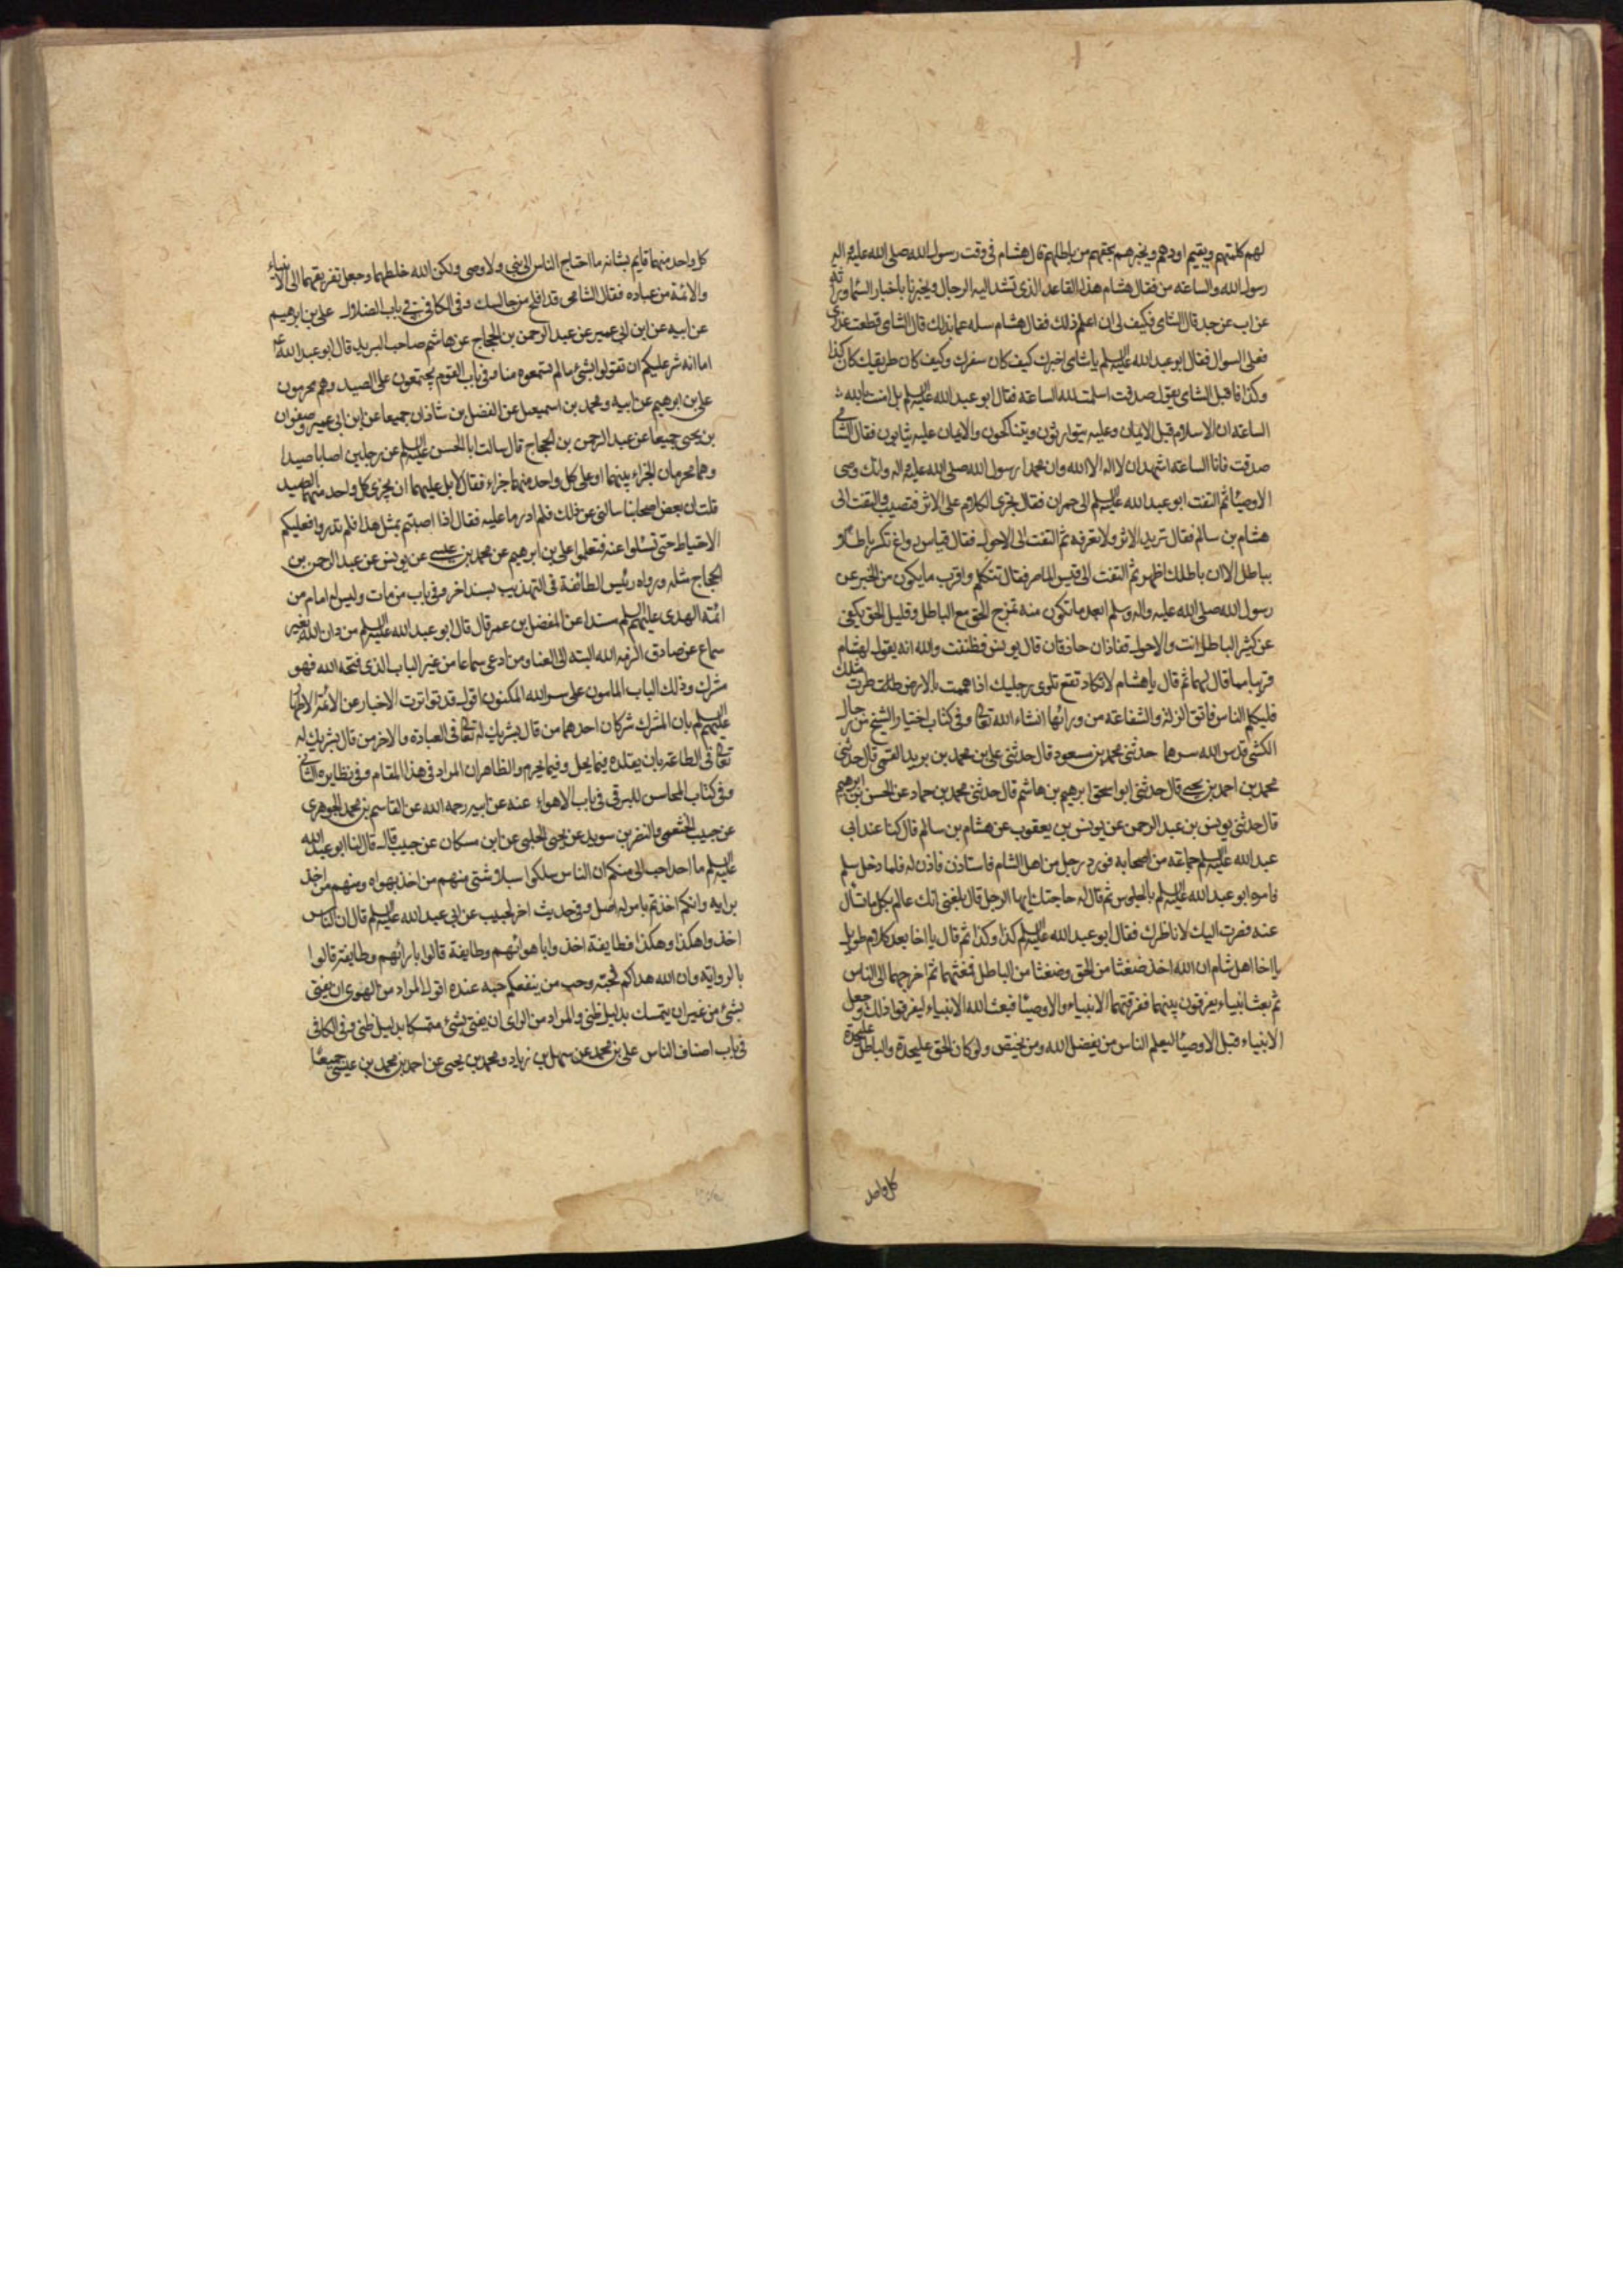 لهم كلمتهم ويقيم اودهم ويخبرهم بحقهم من باطلهم قال هشام في وقت رسول الله صلى الله عليه واله
رسول الله والساعة من فقال هشام هذا القاعد الذي تشد اليه الرحال ويخبرنا باخبار السماء وراثة
عن اب عن جد قال الشامي فكيف لي ان اعلم ذلك فقال هشام سله عما بدا لك قال الشامي قطعت عذري
فعلي السوال فقال ابو عبد الله عليه السلم يا شامي اخبرك كيف كان سفرك وكيف كان طريقك كان كذا
وكذا فاقبل الشامي يقول صدقت اسلمت لله الساعة فقال ابو عبد الله عليه السلم بل امنت بالله
الساعة ان الاسلام قبل الايمان وعليه يتوارثون ويتناكحون والايمان عليه يثابون فقال الشامي
صدقت فانا الساعة اشهد ان لا اله الا الله وان محمدا رسول الله صلى الله عليه واله وانك وصي
الاوصياء ثم التفت ابو عبد الله عليه السلم الى حمران فقال تجري الكلام على الاثر فتصيب والتفت الى
هشام بن سالم فقال تريد الاثر ولا تعرفه ثم التفت الى الاحول فقال قياس رواغ تكسر باطلا
بباطل الا ان باطلك اظهر ثم التفت الى قيس الماصر فقال تتكلم واقرب ما يكون من الخبر عن
رسول الله صلى الله عليه واله وسلم ابعد ما تكون منه تمزج الحق مع الباطل وقليل الحق يكفي
عن كثير الباطل انت والاحول قفازان حاذقان قال يونس فظننت والله انه يقول لهشام
قريبا مما قال لهما ثم قال يا هشام لا تكاد تقع تلوي رجليك اذا هممت بالارض طرت مثلك
فليكلم الناس فاتق الزلة والشفاعة من ورائها انشاء الله تعالى وفي كتاب اختيار الشيخ من رجال
الكشي قدس الله سرهما حدثني محمد بن مسعود قال حدثني علي بن محمد بن يزيد القمي قال حدثني
محمد بن احمد بن يحيى قال حدثني ابو اسحق ابرهيم بن هاشم قال حدثني محمد بن حماد عن الحسن بن ابرهيم
قال حدثني يونس بن عبد الرحمن عن يونس بن يعقوب عن هشام بن سالم قال كنا عند ابي
عبد الله عليه السلم جماعة من اصحابه فورد رجل من اهل الشام فاستاذن فاذن له فلما دخل سلم
فامره ابو عبد الله عليه السلم بالجلوس ثم قال له حاجتك ايها الرجل قال بلغني انك عالم بكل ما تسال
عنه فصرت اليك لاناظرك فقال ابو عبد الله عليه السلم كذا وكذا ثم قال يا اخا بعد كلام طويل
يا اخا اهل شام ان الله اخذ ضغثا من الحق وضغثا من الباطل فمغثهما ثم اخرجهما الى الناس
ثم بعث انبياء يفرقون بينهما ففرقتهما الانبياء والاوصياء فبعث الله الانبياء ليفرقوا ذلك وجعل
الانبياء قبل الاوصياء ليعلم الناس من يفضل الله ومن يختص ولو كان الحق عليحدة والباطل عليحدة
كل واحد
كل واحد منهما قايم بشانه ما احتاج الناس الى نبي ولا وصي ولكن الله خلطهما وجعل تفريقهما الى الانبياء
والائمة من عباده فقال الشامي قد افلح من جالسك وفي الكافي في باب الضلال علي بن ابرهيم
عن ابيه عن ابن ابي عمير عن عبد الرحمن بن الحجاج عن هاشم صاحب البريد قال ابو عبد الله ع
اما انه شر عليكم ان تقولوا بشئ ما لم تسمعوه منا وفي باب القوم يجتمعون على الصيد وهم محرمون
علي بن ابرهيم عن ابيه ومحمد بن اسمعيل عن الفضل بن شاذان جميعا عن ابن ابي عمير وصفوان
بن يحيى جميعا عن عبد الرحمن بن الحجاج قال سالت ابا الحسن عليه السلم عن رجلين اصابا صيدا
وهما محرمان الجزاء بينهما او على كل واحد منهما جزاء فقال لا بل عليهما ان يجزي كل واحد منهما الصيد
قلت ان بعض اصحابنا سالني عن ذلك فلم ادر ما عليه فقال اذا اصبتم بمثل هذا فلم تدروا فعليكم
الاحتياط حتى تسئلوا عنه فتعلموا علي بن ابرهيم عن محمد بن عيسى عن يونس عن عبد الرحمن بن
الحجاج مثله ورواه رئيس الطائفة في التهذيب بسند اخر وفي باب من مات وليس له امام من
ائمة الهدى عليهم السلم مسندا عن المفضل بن عمر قال قال ابو عبد الله عليه السلم من دان الله بغير
سماع عن صادق الزمه الله البتة الى العنا ومن ادعى سماعا من غير الباب الذي فتحه الله فهو
مشرك وذلك الباب المامون على سر الله المكنون اقول قد تواترت الاخبار عن الائمة الاطهار
عليهم السلم بان المشرك شركان احدهما من قال بشريك له تعالى في العبادة والاخر من قال بشريك له
تعالى في الطاعة بان يقلده فيما يحل وفيما يحرم والظاهر ان المراد في هذا المقام وفي نظايره الثاني
وفي كتاب المحاسن للبرقي في باب الاهواء عنه عن ابيه رحمه الله عن القاسم بن محمد الجوهري
عن حبيب الخثعمي والنضر بن سويد عن يحيى الحلبي عن ابن مسكان عن حبيب قال قال لنا ابو عبد الله
عليه السلم ما احد احب الي منكم ان الناس سلكوا سبلا شتى منهم من اخذ بهواه ومنهم من اخذ
برايه وانكم اخذتم بامر له اصل وفي حديث اخر لحبيب عن ابي عبد الله عليه السلم قال ان الناس
اخذوا هكذا وهكذا فطايفة اخذوا باهوائهم وطايفة قالوا بارائهم وطايفة قالوا
بالرواية وان الله هداكم لحبه وحب من ينفعكم حبه عنده اقول المراد من الهوى ان يفتي
بشئ من غير ان يتمسك بدليل ظني والمراد من الراي ان يفتي بشئ متمسكا بدليل ظني وفي الكافي
في باب اصناف الناس علي بن محمد عن سهل بن زياد ومحمد بن يحيى عن احمد بن محمد بن عيسى جميعا